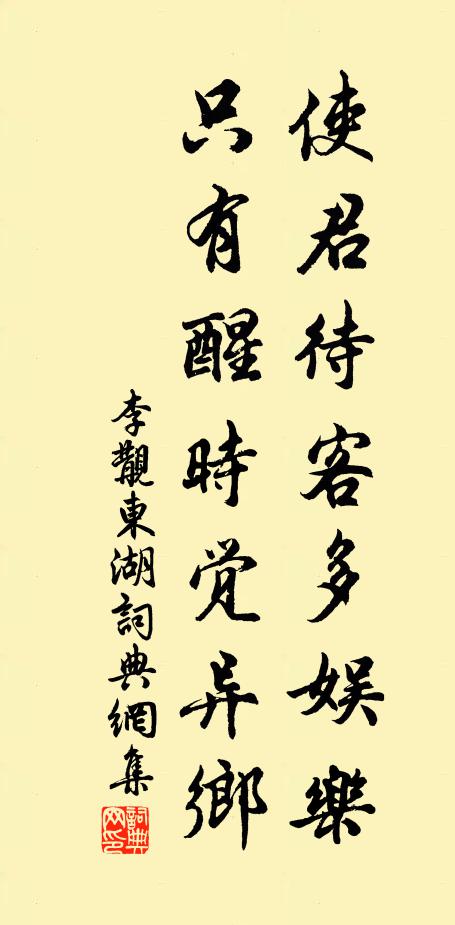 使君待客多娱樂
只有醒時觉异鄉
李觏東湖詞典網集
詞典网印